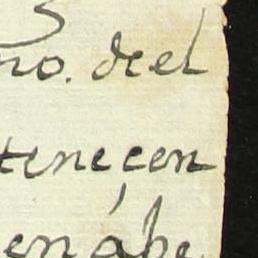 no. de el
teneçen
en ábe